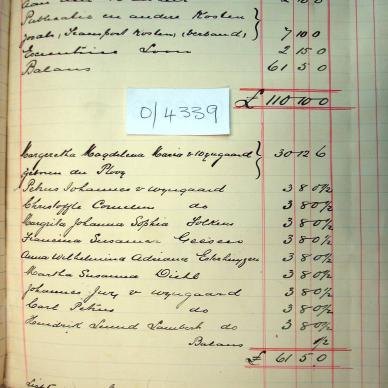 Publicatie en andere Kosten
zoals, Transport Kosten, (Verband) } 7 10 0
Executeurs Loon 2 15 0
Balans 61 5 0
£ 110 10 0
0/4339
Margeretha Magdelena Maria v Wyngaard } 30 12 6
geboren du Plooy
Petrus Johannes v Wyngaard 3 8 0½
Christoffle Cornelius do 3 8 0½
Margita Johanna Sophia 3 8 0½
Francina Susanna 3 8 0½
Anna Wilhelmina Adriana 3 8 0½
Martha Susanna Diehl 3 8 0½
Johannes Jurg v Wyngaard 3 8 0½
Carl Petrus do 3 8 0½
Hendrik Lambert do 3 8 0½
Balans ½
£ 61 5 0